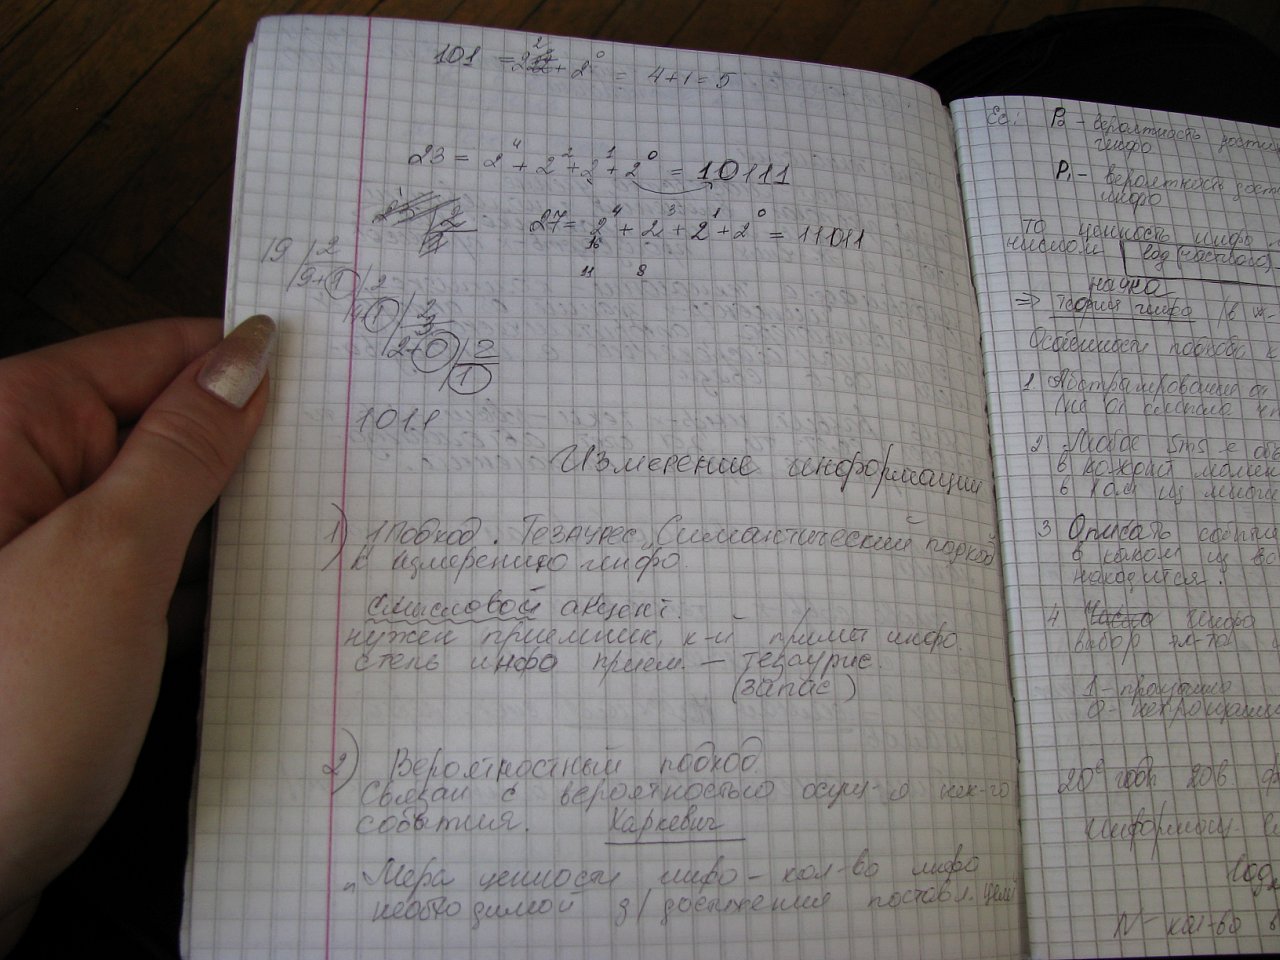 101 = 2² + 2⁰ = 4+1=5
23 = 2⁴ + 2² + 2¹ + 2⁰ = 10111
27= 2⁴ + 2³ + 2¹ + 2⁰ = 11011
16
11 8
19 | 2
9+1 | 2
4+1 | 2
2+0 | 2
1
1011
Измерение информации
1) 1 Подход. Тезаурес. Симантический подход
к измерению инфо.
смысловой акцент.
нужен приемник, к-й примет инфо.
степь инфо прием. – тезаурис.
(запас)
2) Вероятностный подход
Связан с вероятностью осущ-я нек-го
события. Харкевич
Мера ценности инфо – кол-во инфо
необходимой д/ достижения поставл. цели
Ес: P₀ – вероятность
инфо
P₁ – вероятность
инфо
то ценность инфо
числом log (частного)
наука
⇒ теория инфо
Особенности подхода к
1. Абстрагирование от
2 Любое SMS
в каждый момен
в как из
3 Описать событи
в каком из во
находится.
4 Чисто Инфо
выбор эл-та
1 – произошло
0 –
20е годы 20в
информац.
log
N – кол-во в